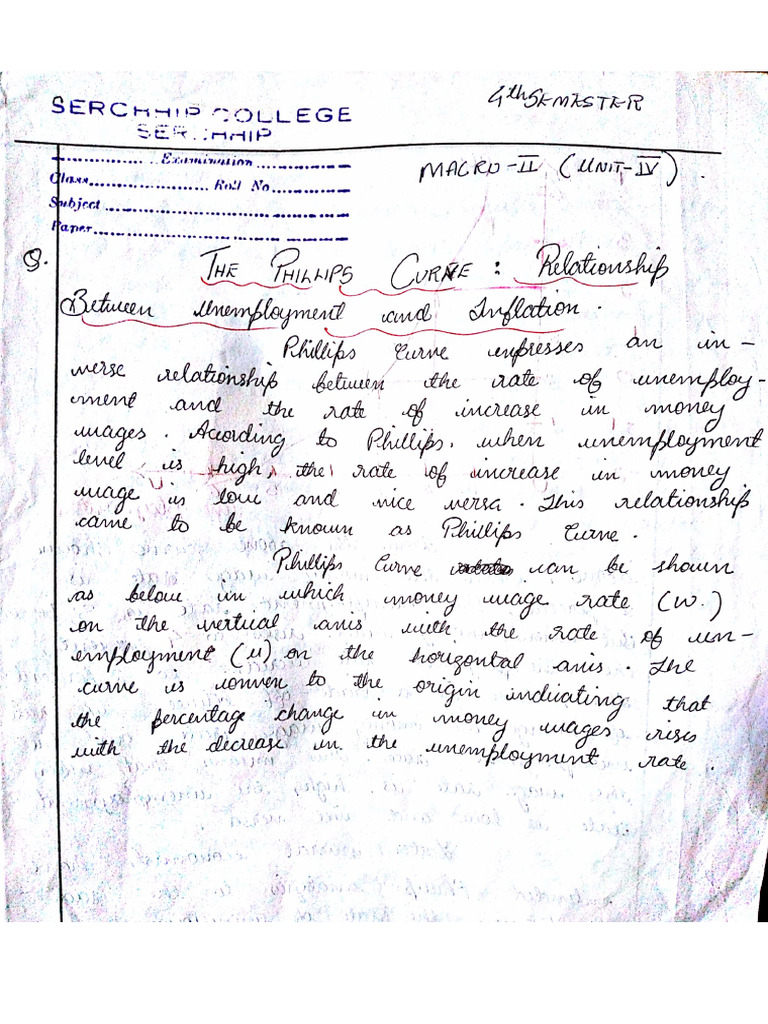 4th SEMESTER
SERCHHIP COLLEGE
SERCHHIP
Examination
MACRO-II (UNIT-IV).
Class Roll No
Subject
Paper
Q. THE PHILLIPS CURVE : Relationship
Between Unemployment and Inflation.
Phillips Curve expresses an in-
verse relationship between the rate of unemploy-
ment and the rate of increase in money
wages. According to Phillips, when unemployment
level is high, the rate of increase in money
wage is low and vice versa. This relationship
came to be known as Phillips Curve.
Phillips Curve can be shown
as below in which money wage rate (W.)
on the vertical axis with the rate of un-
employment (u) on the horizontal axis. The
curve is convex to the origin indicating that
the percentage change in money wages rises
with the decrease in the unemployment rate.